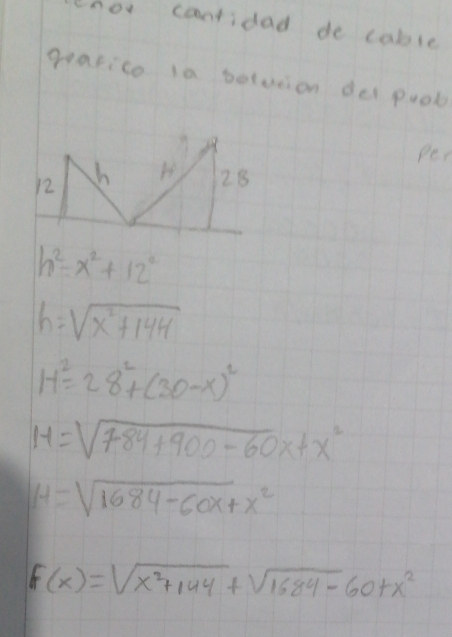 cantidad de cable
grafico la solucion del prob
per
12 h H 28
h²=x²+12²
h=√x²+144
H²=28²+(30-x)²
H=√784+900-60x+x²
H=√1684-60x+x²
F(x)=√x²+144+√1684-60+x²